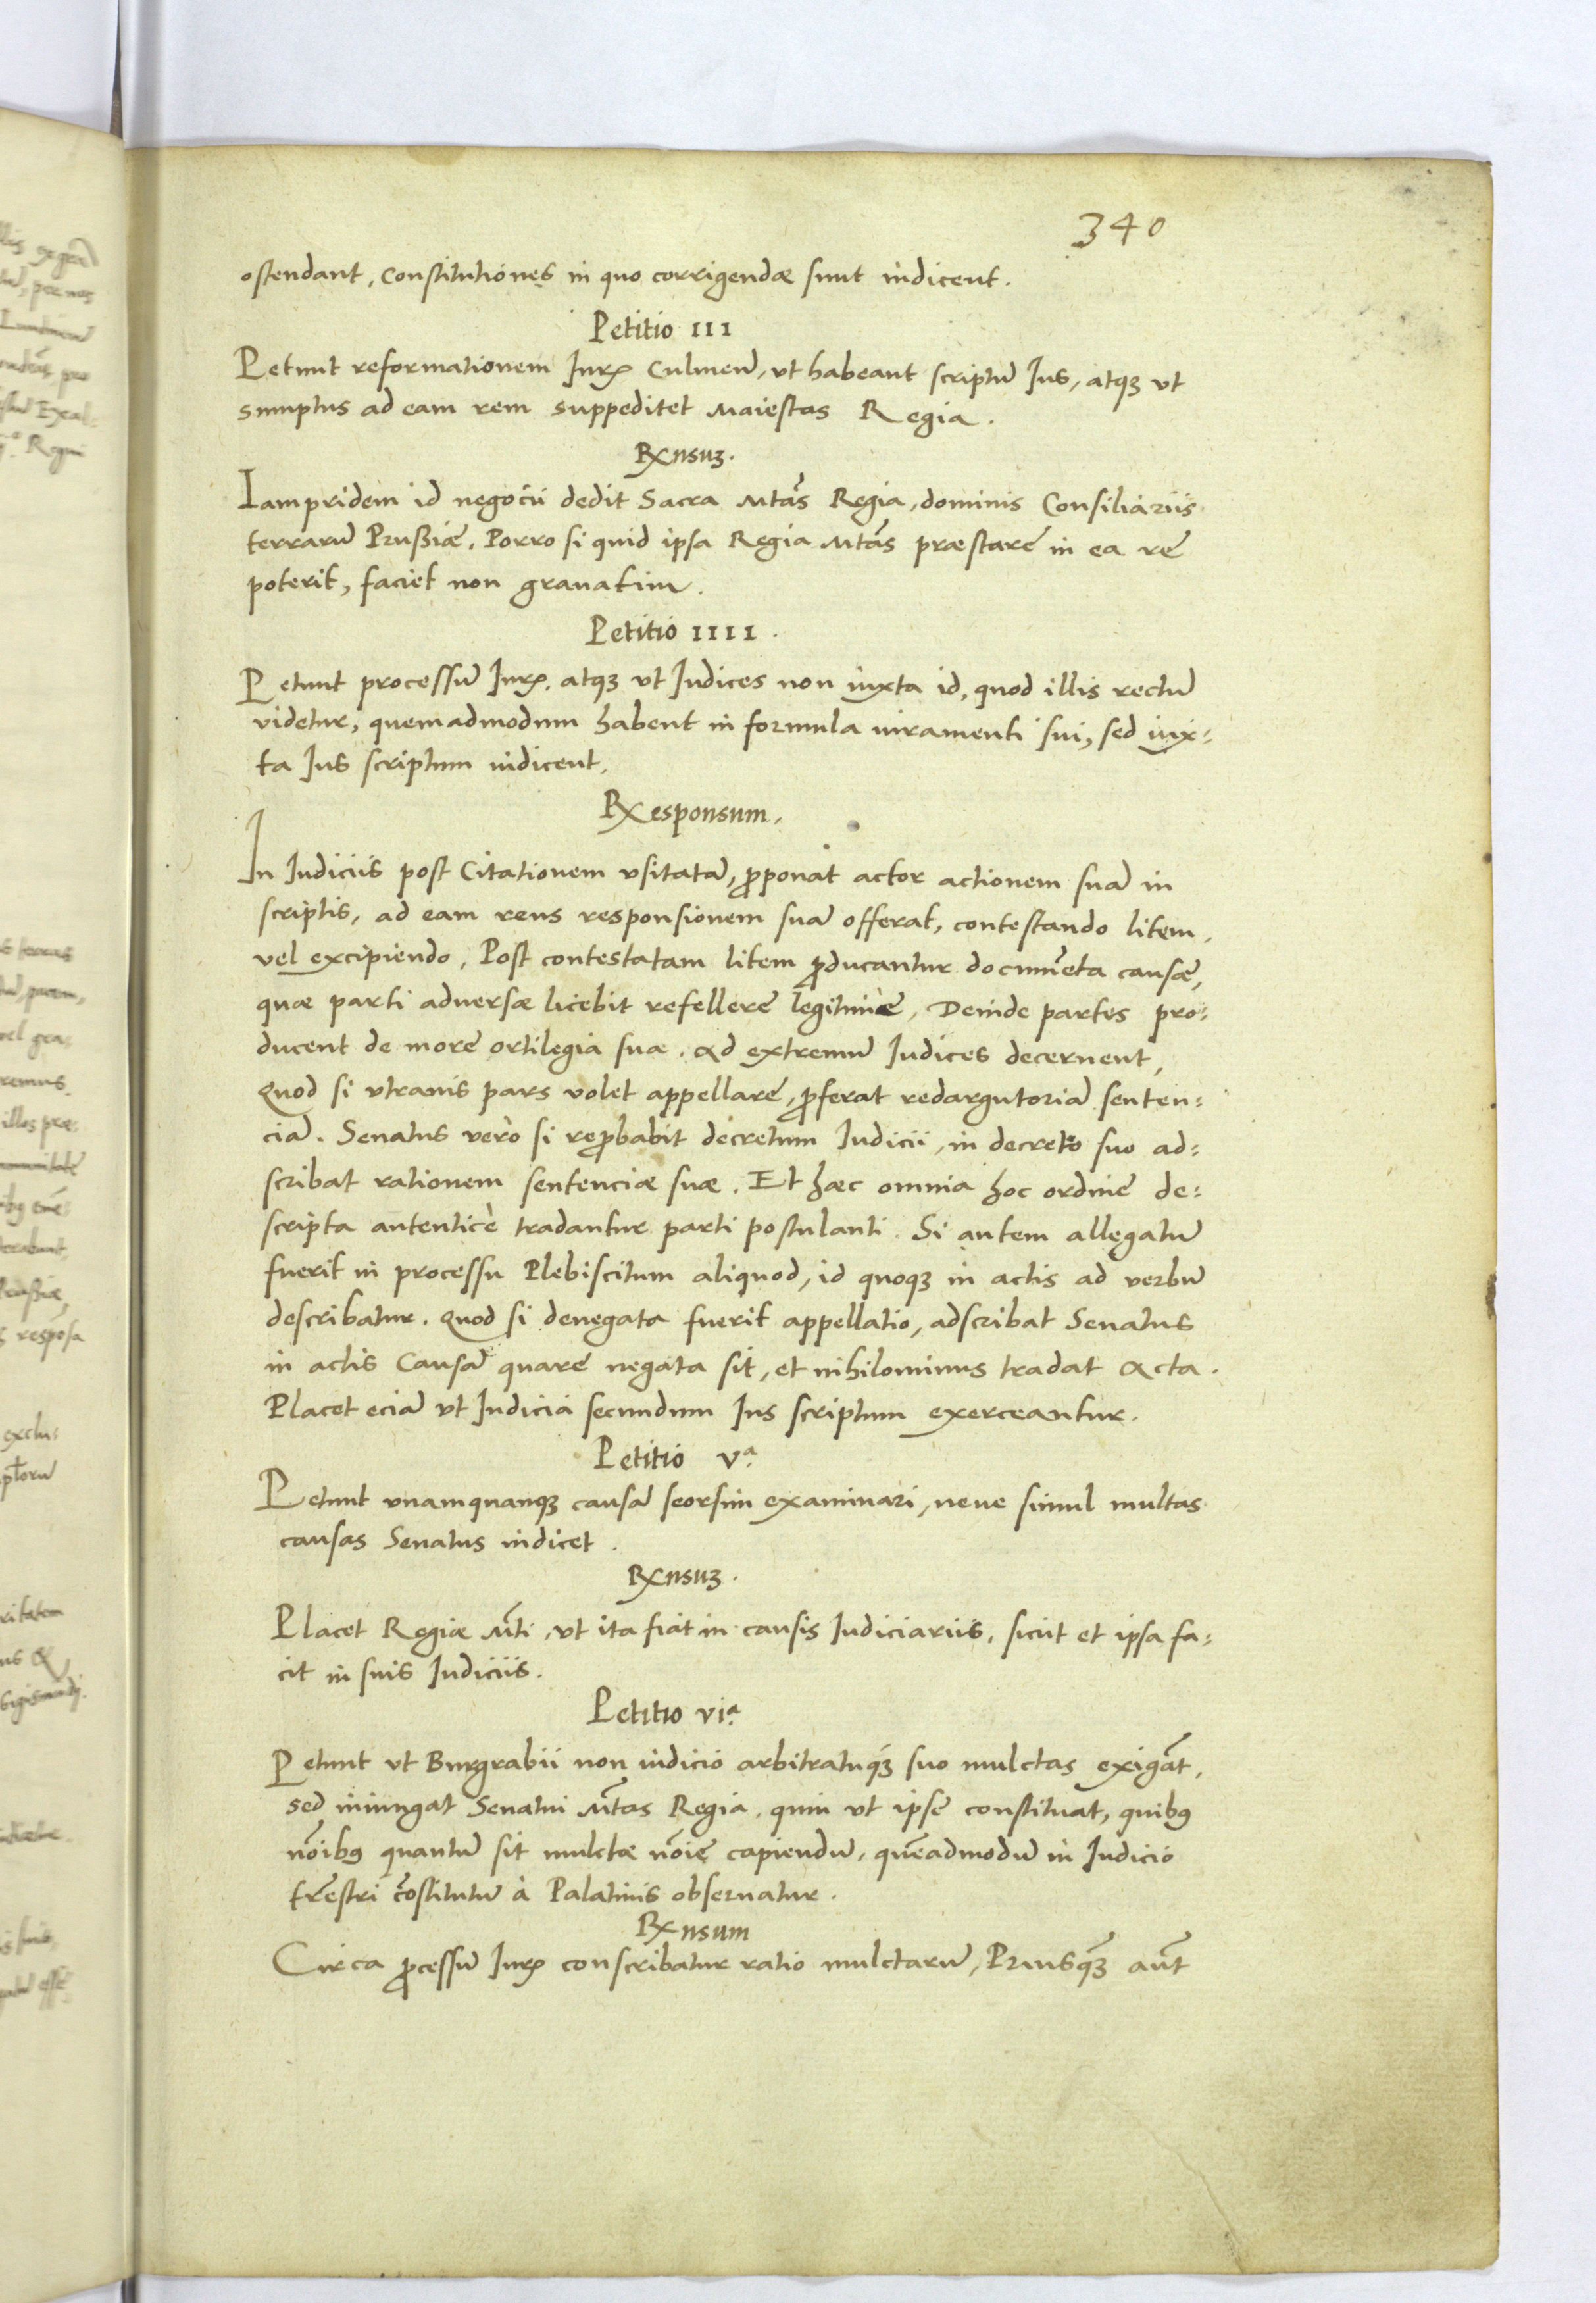 340
ostendant, Constitutiones in quo corrigendæ sunt indicent.
Petitio III
Petunt reformationem Iurꝫ Culmeñ, vt habeant scriptū Ius, atqꝫ vt
sumptus ad eam rem suppeditet Maiestas Regia.
Rxnsuꝫ.
Iampridem id negocii dedit Sacra Mtas Regia, dominis Consiliariis
terrarū Prußiæ. Porro si quid ipsa Regia Mtas præstare in ea re
poterit, faciet non grauatim.
Petitio IIII.
Petunt processū Iurꝫ. atqꝫ vt Iudices non iuxta id, quod illis rectū
videtur, quemadmodum habent in formula iuramenti sui, sed iux-
ta Ius scriptum iudicent.
Rxesponsum.
In Iudiciis post Citationem vsitatā, ꝓponat actor actionem suā in
scriptis, ad eam reus responsionem suā offerat, contestando litem,
vel excipiendo. Post contestatam litem ꝓducantur documēta causæ,
quæ parti aduersæ licebit refellere legitime, Deinde partes pro-
ducent de more ortilegia sua. Ad extremū Iudices decernent,
Quod si vtrauis pars volet appellare, ꝓferat redargutoriā senten-
ciā. Senatus verò si reꝓbabit decretum Iudicii, in decreto suo ad-
scribat rationem sentenciæ suæ. Et hæc omnia hoc ordine de-
scripta autenticè tradantur parti postulanti. Si autem allegatū
fuerit in processu Plebiscitum aliquod, id quoqꝫ in actis ad verbū
describatur. Quod si denegata fuerit appellatio, adscribat Senatus
in actis Causā quare negata sit, et nihilominus tradat Acta.
Placet eciā vt Iudicia secundum Ius scriptum exerceantur.
Petitio Vª
Petunt vnamquanqꝫ causā seorsim examinari, neue simul multas
causas Senatus iudicet.
Rxnsuꝫ.
Placet Regiæ Mti, vt ita fiat in causis Iudiciariis, sicut et ipsa fa-
cit in suis Iudiciis.
Petitio VIª
Petunt vt Burgrabii non iudicio arbitratuqꝫ suo mulctas exigāt,
sed iniungat Senatui Mtas Regia, quin vt ipse constituat, quibꝰ
nōibꝰ quantū sit mulctæ nōie capiendū, quēadmodū in Iudicio
tr̄estri cōstitutū à Palatinis obseruatur.
Rxnsum
Circa ꝓcessū Iurꝫ conscribatur ratio mulctarū, Priusqꝫ aūt